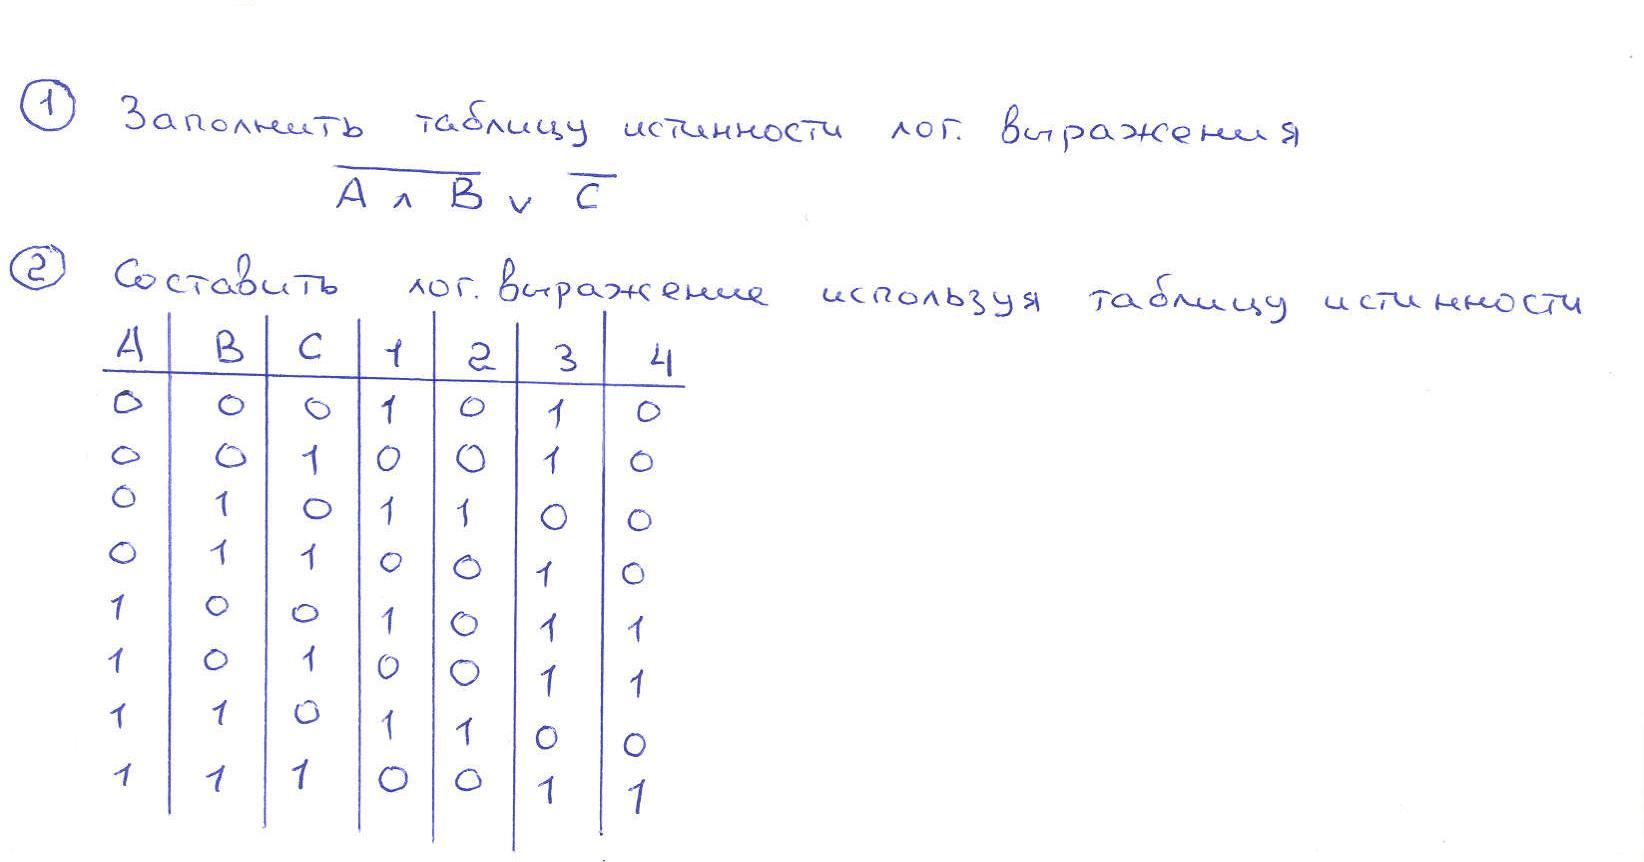 ① Заполнить таблицу истинности лог. выражения
A̅ ̅∧̅ ̅B̅ ∨ C̅
② Составить лог. выражение используя таблицу истинности
A B C 1 2 3 4
0 0 0 1 0 1 0
0 0 1 0 0 1 0
0 1 0 1 1 0 0
0 1 1 0 0 1 0
1 0 0 1 0 1 1
1 0 1 0 0 1 1
1 1 0 1 1 0 0
1 1 1 0 0 1 1